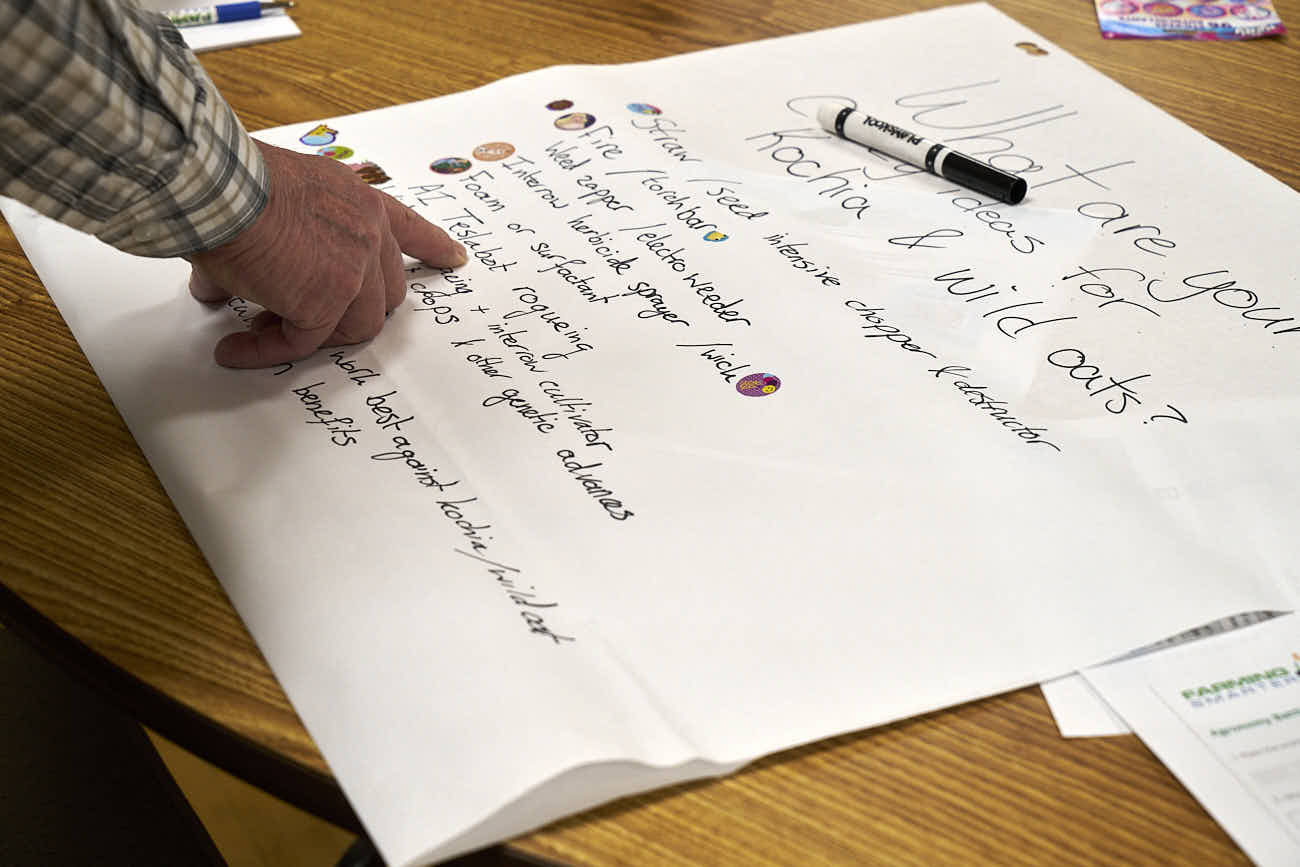 What are your
crazy ideas for
Kochia & wild oats?
Straw / seed intensive chopper & destructor
Fire / torch bar
Weed zapper / electroweeder
Interrow herbicide sprayer / wick
Foam or surfactant
AI Teslabot rogueing
+ interrow cultivator
crops & other genetic advances
work best against kochia/wild oat
benefits
FARMING
SMARTER
Agronomy